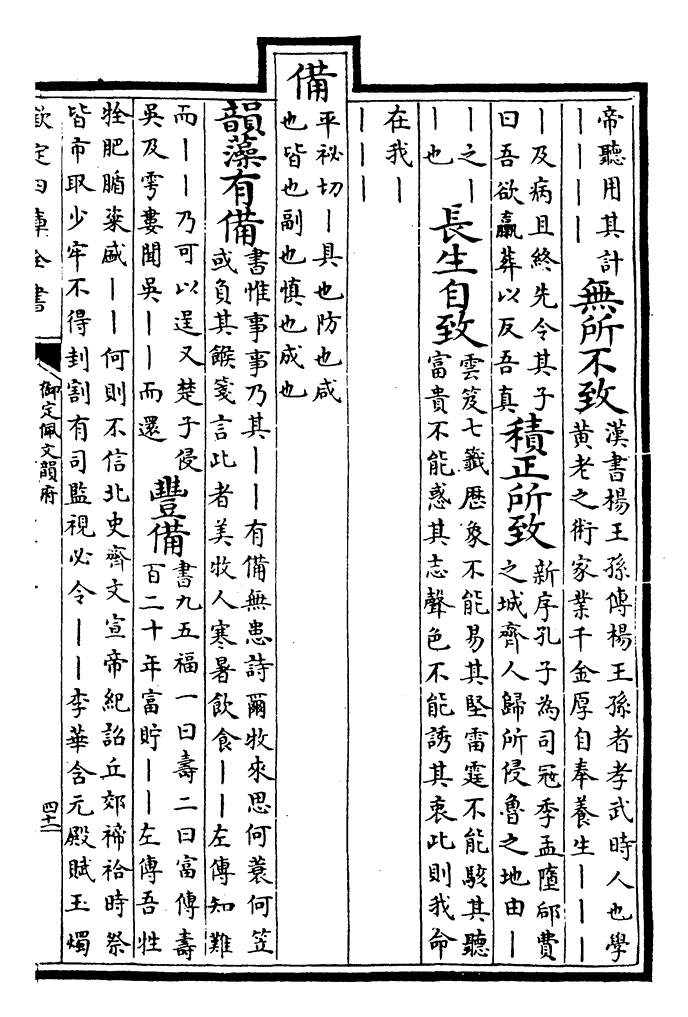 帝聽用其計
｜｜｜｜
無所不致
漢書楊王孫傳楊王孫者孝武時人也學
黃老之術家業千金厚自奉養生｜｜｜
｜及病且終先令其子
曰吾欲臝葬以反吾真
積正所致
新序孔子為司冦季孟墮郈費
之城齊人歸所侵魯之地由｜
｜之｜
｜也
長生自致
雲笈七籖歴象不能易其堅雷霆不能駭其聽
富貴不能惑其志聲色不能誘其衷此則我命
在我｜
｜｜｜
備
平祕切｜具也防也咸
也皆也副也慎也成也
韻藻有備
書惟事事乃其｜｜有備無患詩爾牧來思何蓑何笠
或負其餱箋言此者美牧人寒暑飲食｜｜左傳知難
而｜｜乃可以逞又楚子侵
吳及雩婁聞吳｜｜而還
豐備
書九五福一曰壽二曰富傳壽
百二十年富貯｜｜左傳吾牲
牷肥腯粢盛｜｜何則不信北史齊文宣帝紀詔丘郊禘祫時祭
皆市取少牢不得刲割有司監視必令｜｜李華含元殿賦玉燭
欽定四庫全書
御定佩文韻府
四十二